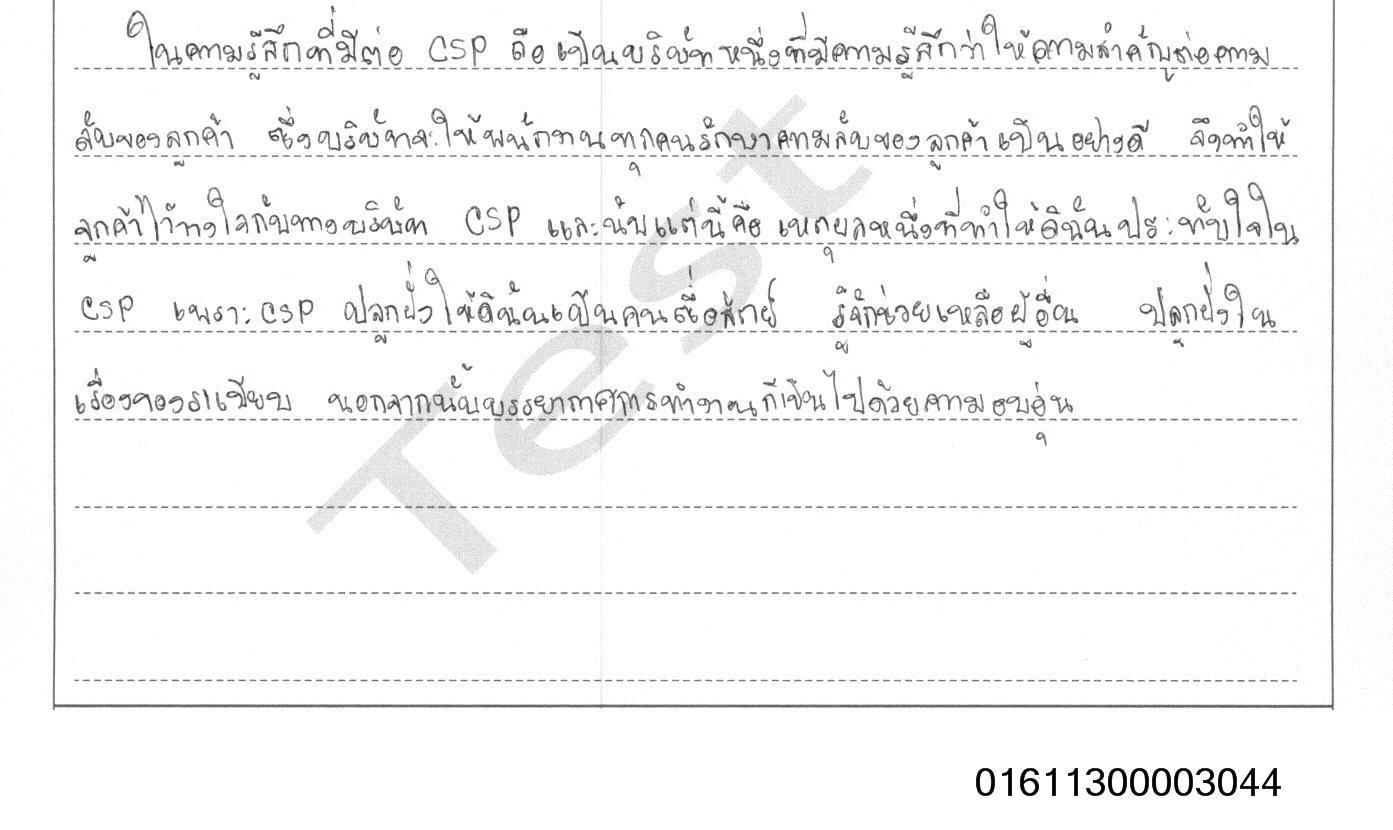 ในความรู้สึกที่มีต่อ CSP ถือเป็นบริษัทหนึ่งที่มีความรู้สึกว่าให้ความสำคัญต่อความ
ลับของลูกค้า ซึ่งบริษัทจะให้พนักงานทุกคนรักษาความลับของลูกค้าเป็นอย่างดี จึงทำให้
ลูกค้าไว้วางใจกับทางบริษัท CSP และนับแต่นี้คือ เหตุผลหนึ่งที่ทำให้ดิฉันประทับใจใน
CSP เพราะ CSP ปลูกฝังให้ดิฉันเป็นคนซื่อสัตย์ รู้จักช่วยเหลือผู้อื่น ปลูกฝังใน
เรื่องของระเบียบ นอกจากนั้นบรรยากาศการทำงานก็เป็นไปด้วยความอบอุ่น
Test
01611300003044